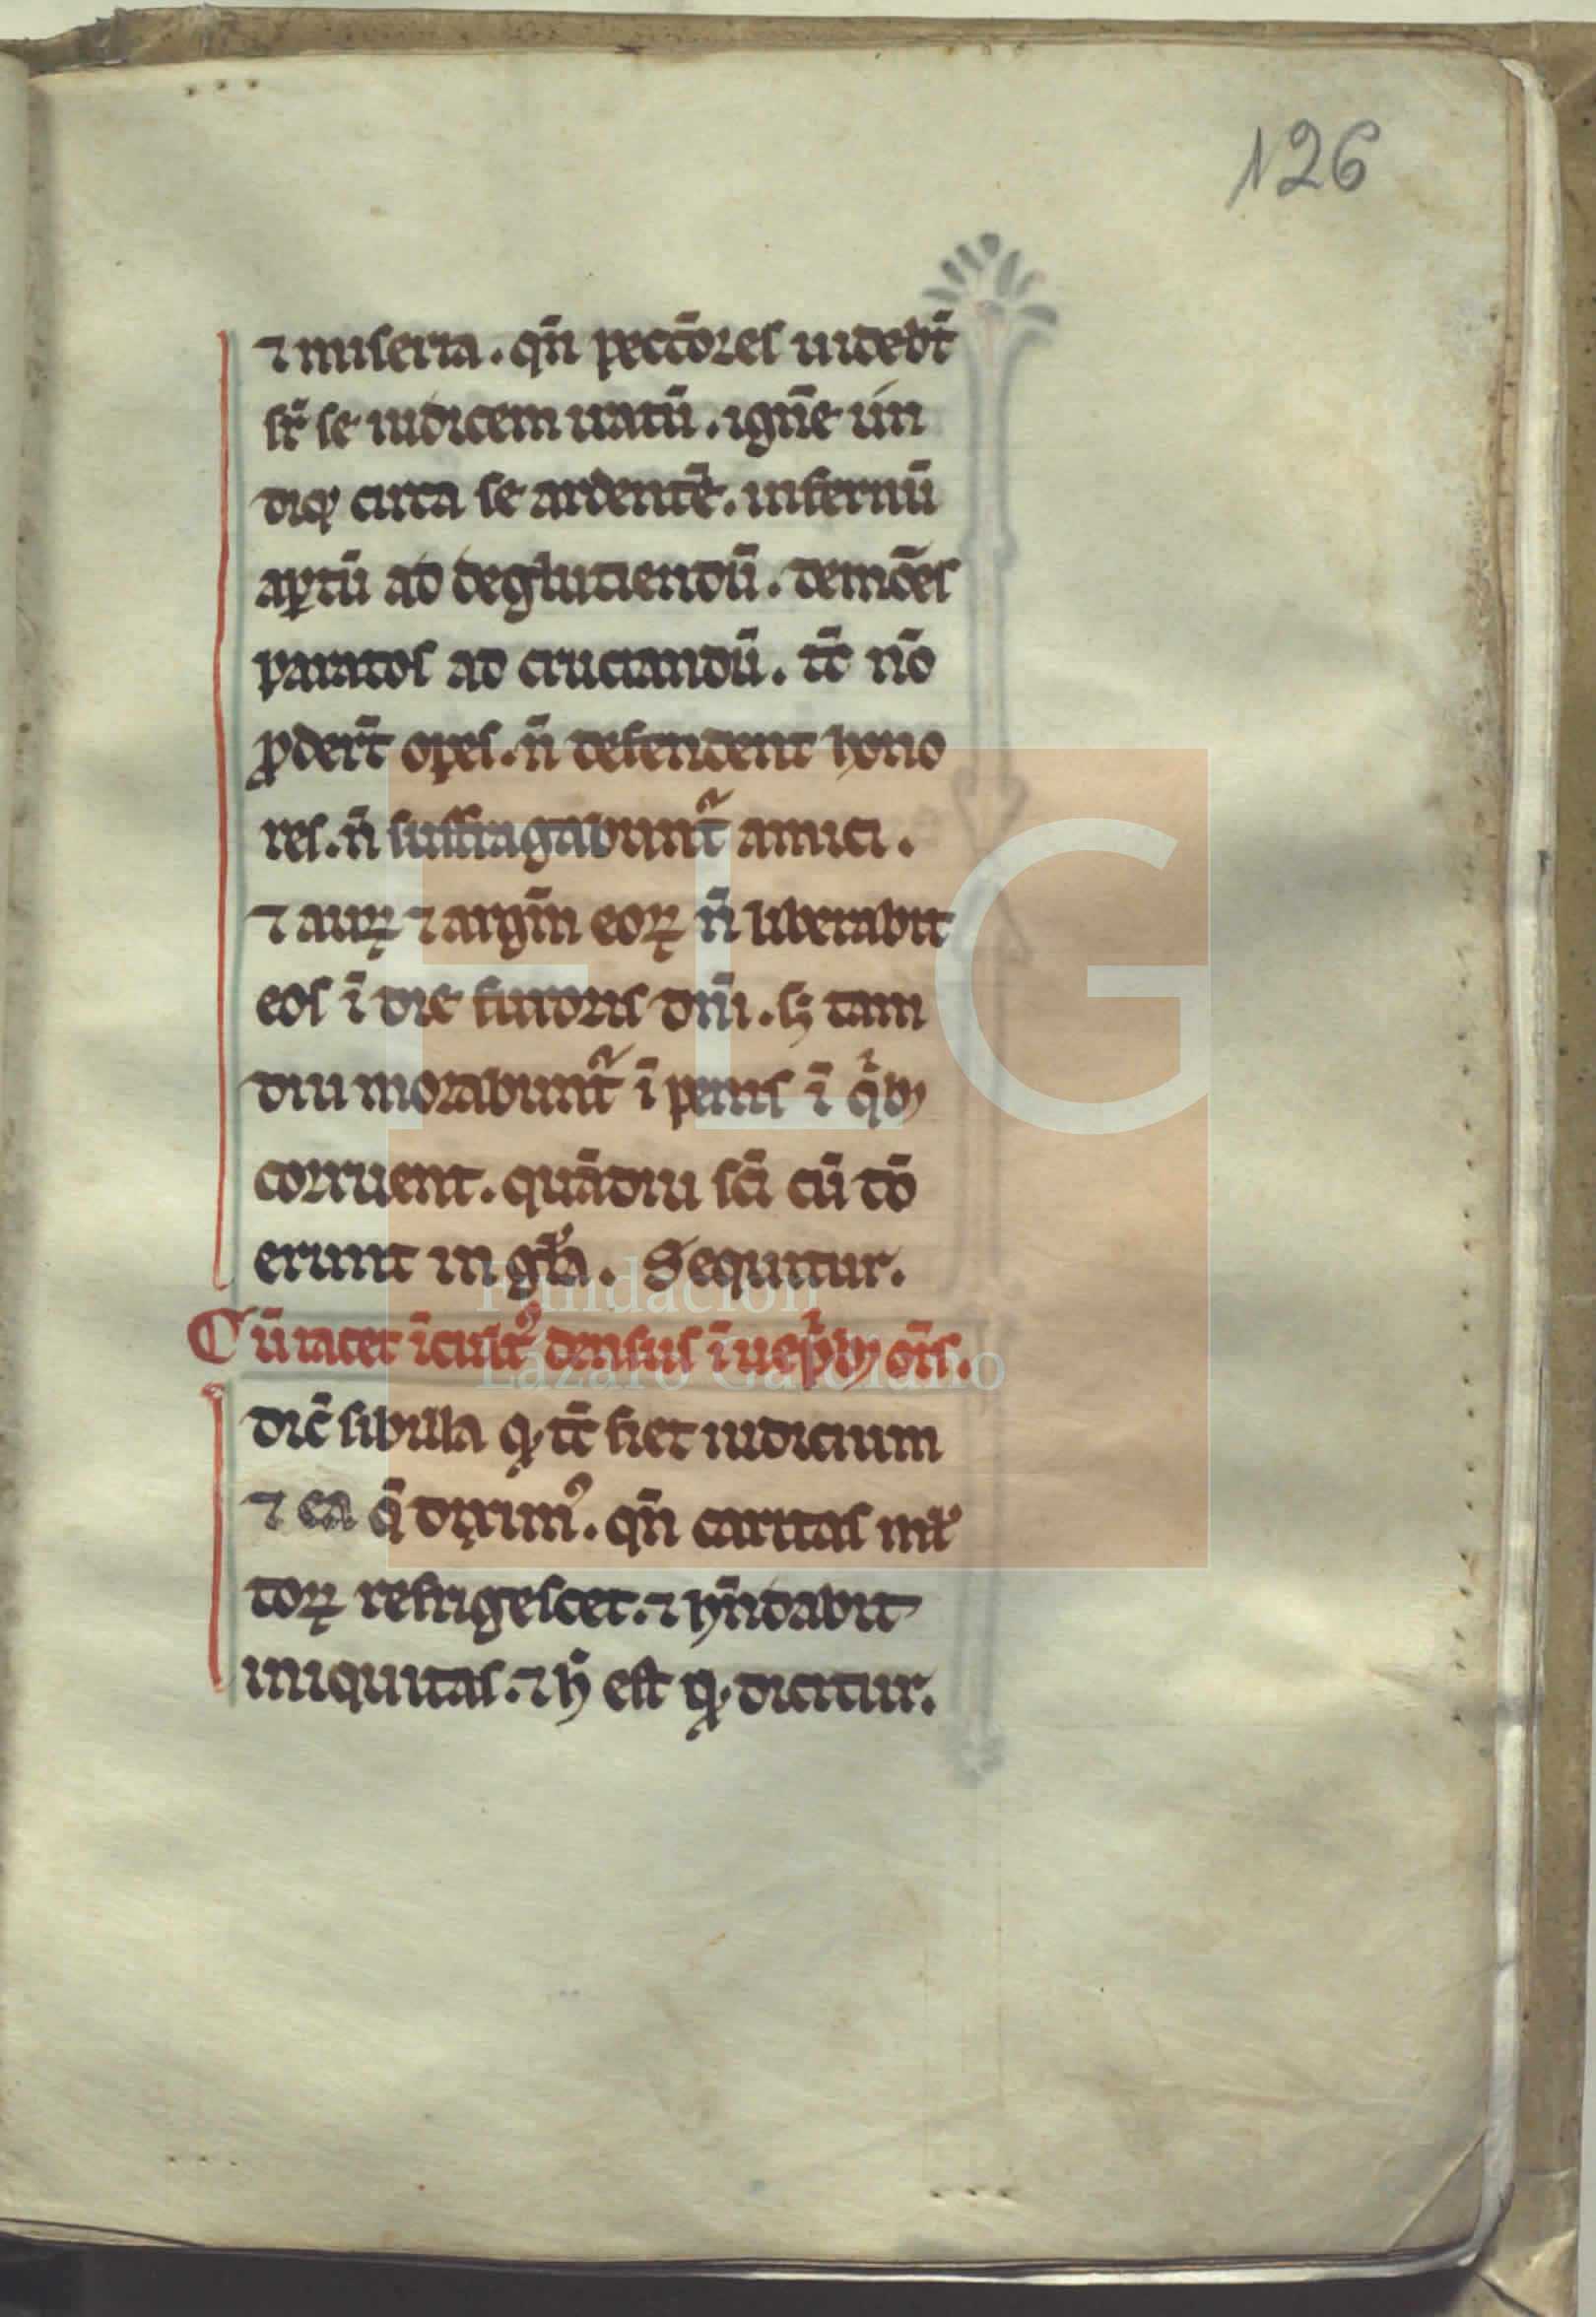 126
⁊ miseria. qn̄ pecc̄ores uidebt̄
sr̄ se iudicem iratū. ignē un
diqꝫ circa se ardentē. infernū
aꝑtū ad deglutiendū. demōes
paratos ad cruciandū. tc̄ nō
ꝓdert̄ opes. n̄ defendent hono
res. n̄ suffragabunt᷑ amici.
⁊ auꝝ ⁊ argm̄ eoꝝ n̄ liberabit
eos ī die furoris dn̄i. sꝫ tam
diu morabunt᷑ ī penis ī qͥbꝫ
corruent. quādiu sc̄i cū dō
erunt in gl̄a. Sequitur.
Cū iacet īcultꝰ densus ī uep̄bꝫ om̄s.
dic̄ sibilla ꝙ tc̄ fiet iudicium
⁊ ea q̄ diximꝰ. qn̄ caritas ml̄
toꝝ refrigescet. ⁊ hn̄dabit
iniquitas. ⁊ h̄ est ꝙ dicitur.
FLG
Fundación
Lázaro Galdiano